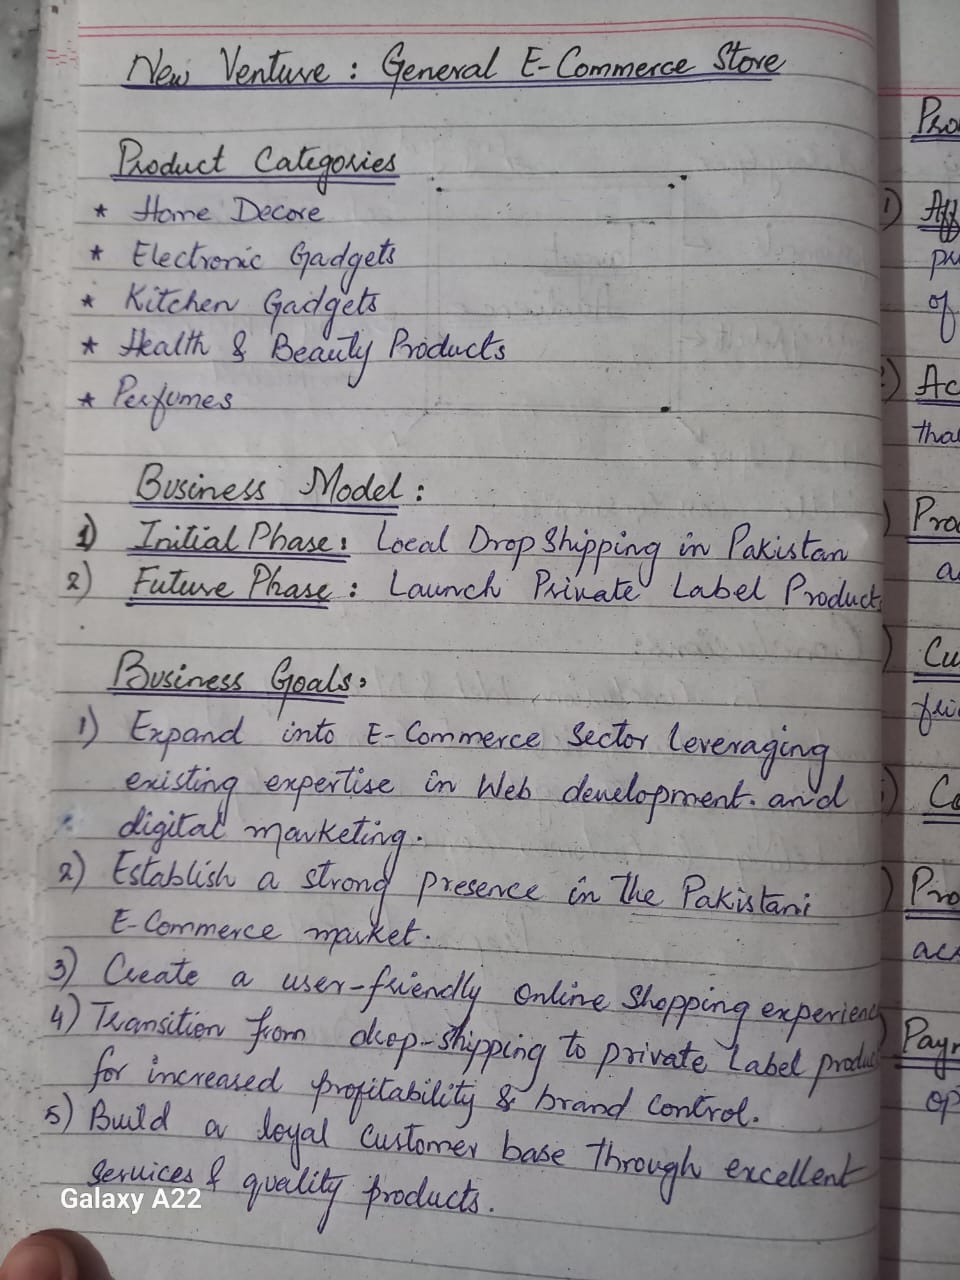 New Venture : General E-Commerce Store
Product Categories
* Home Decore
* Electronic Gadgets
* Kitchen Gadgets
* Health & Beauty Products
* Perfumes
Business Model :
1) Initial Phase : Local Drop Shipping in Pakistan
2) Future Phase : Launch Private Label Products
Business Goals :
1) Expand into E-Commerce Sector leveraging
existing expertise in Web development. and
digital marketing.
2) Establish a strong presence in The Pakistani
E-Commerce market.
3) Create a user-friendly Online Shopping experienc
4) Transition from drop-shipping to private Label produc
for increased profitability & brand Control.
5) Build a loyal Customer base Through excellent
Services & quality products.
Galaxy A22
Pro
1) Aff
pr
of
) Ac
that
) Pro
a
) Cu
fri
) Co
) Pro
acr
) Paym
op